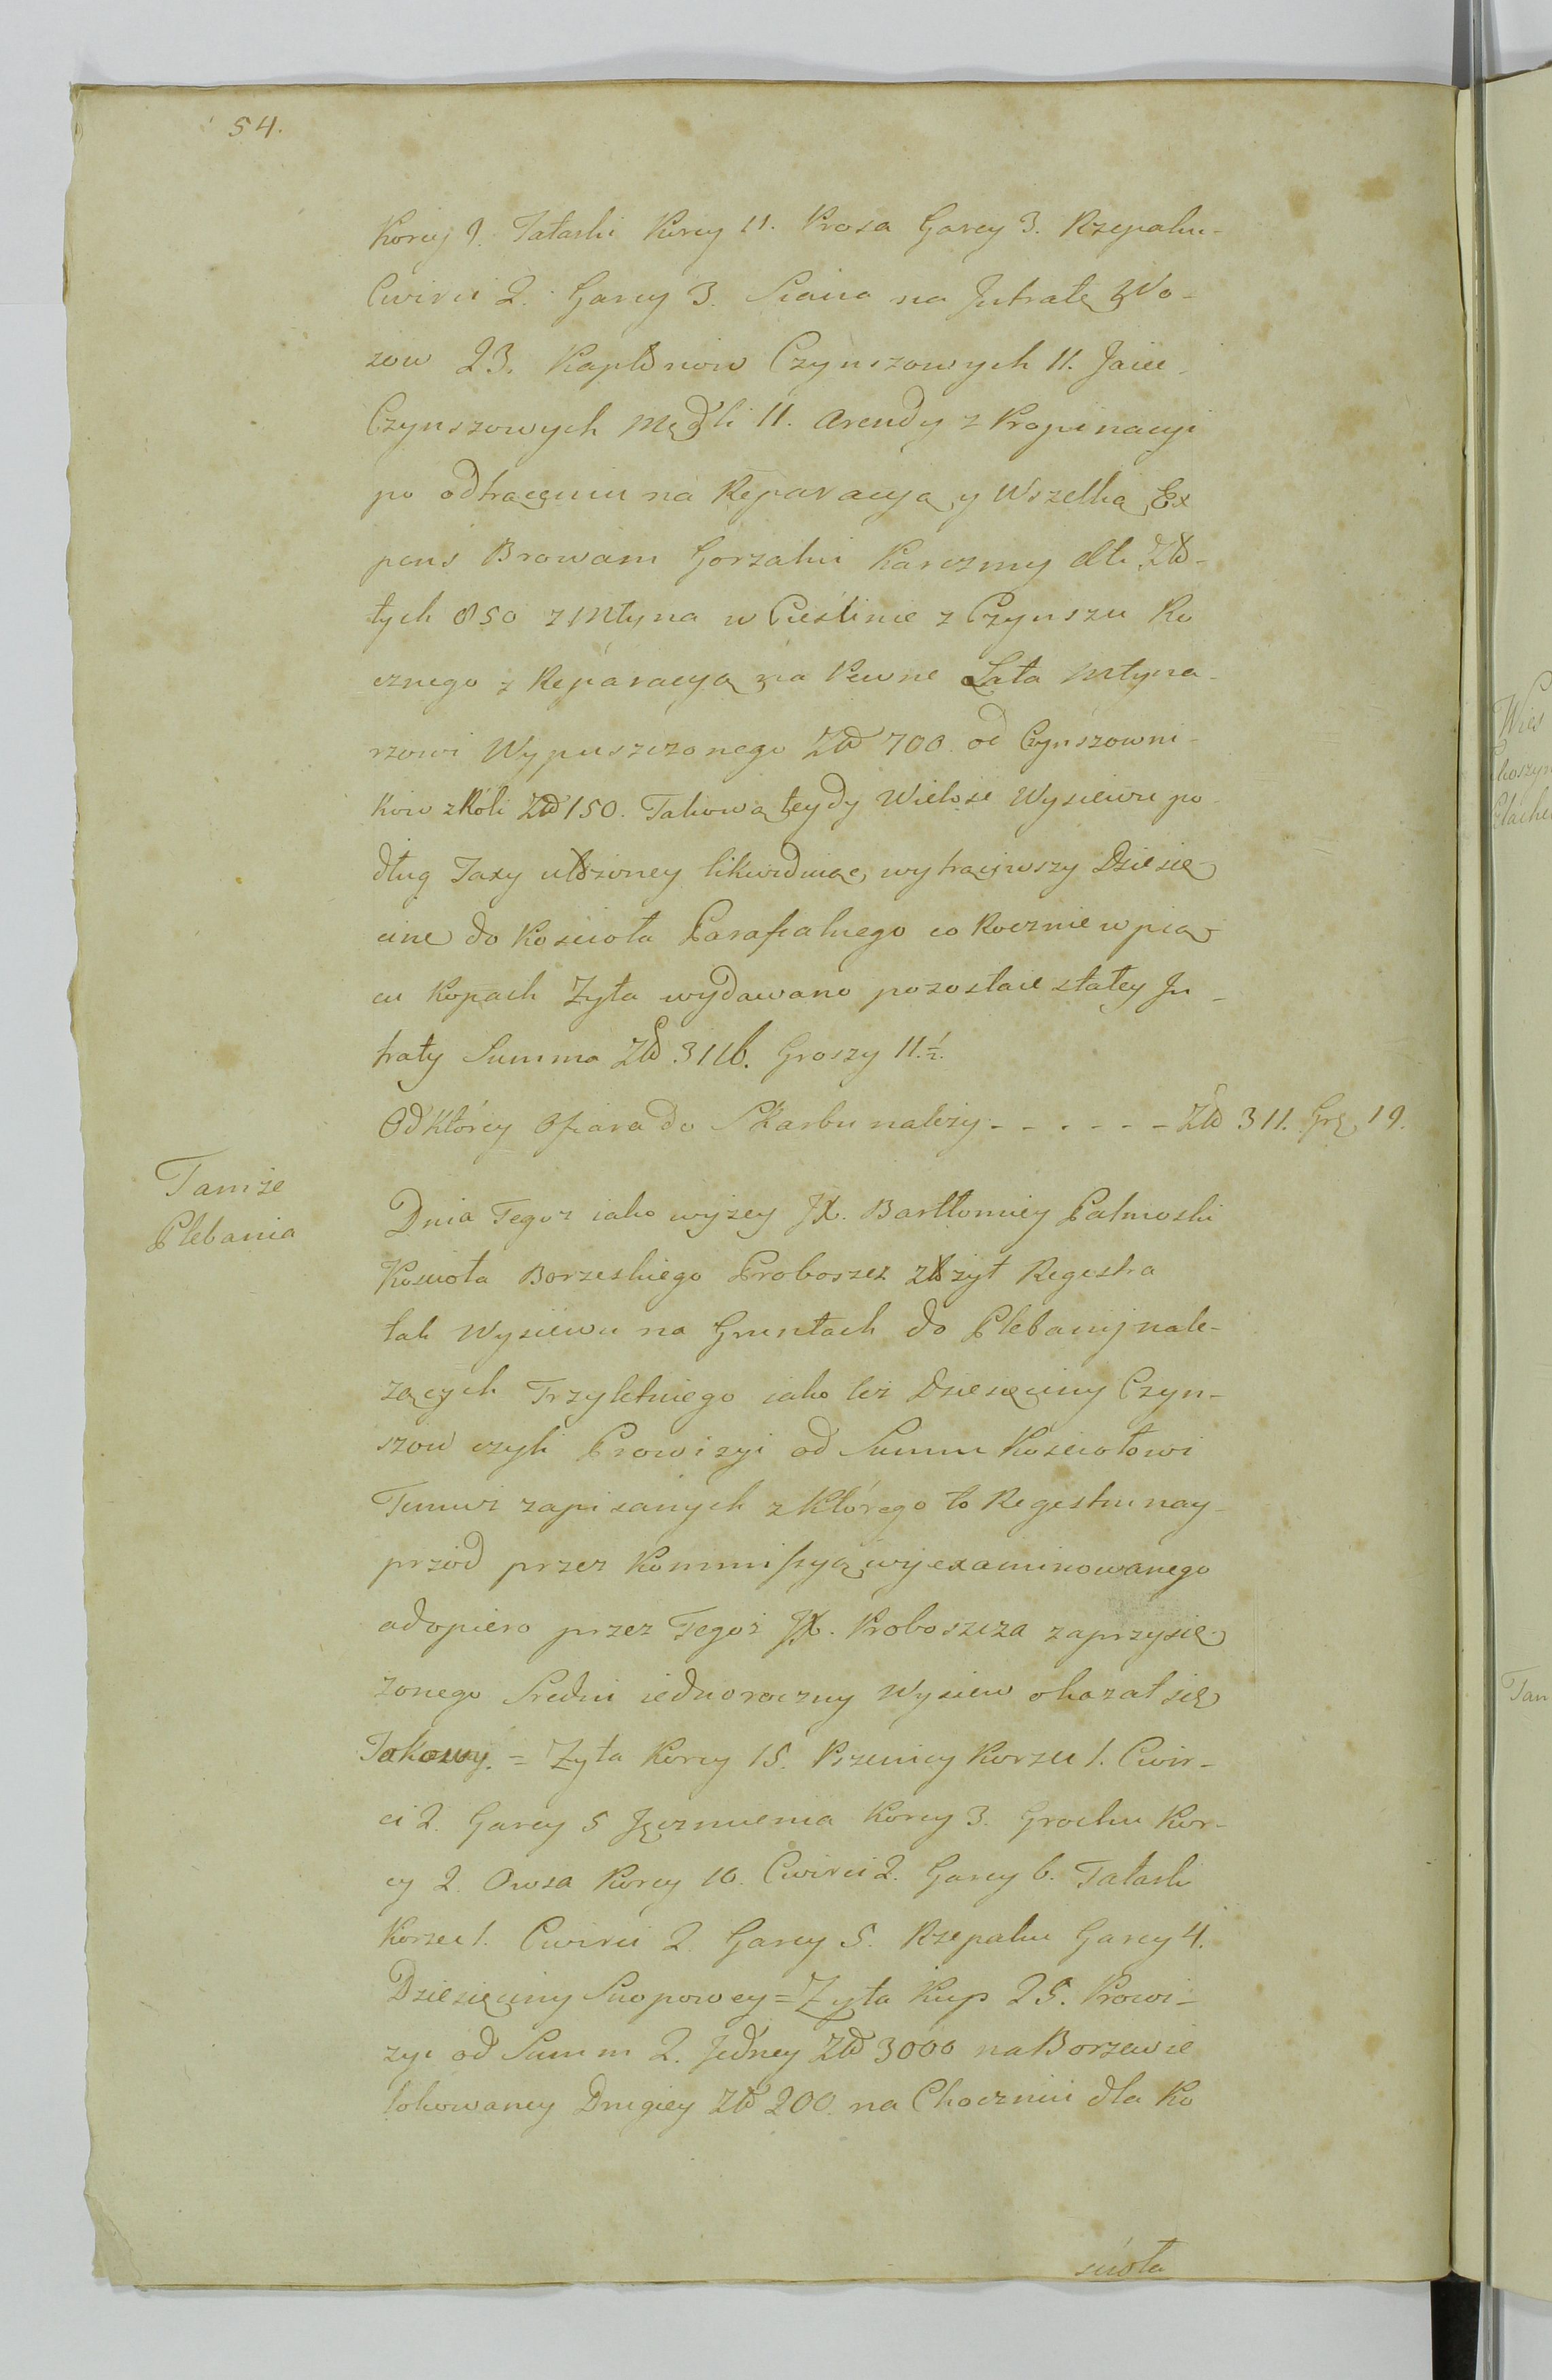 54.
Korcy 9. Tatarki Korcy 11. Prosa Garcy 3. Rzepaku
Cwirci 2. Garcy 3. Siana na Jntratę Wo-
zow 23. Kapłonow Czynszowych 11. Jaiec
Czynszowych Mędli 11. Arendy z Propinacyi
po odtrąceniu na Reparacyą y Wszelką Ex
pens Browaru Gorzalni Karczmy etc. Zło-
tych 850 z Młyna w Cieślinie z Czynszu Ro
cznego z Reparacyą na Pewne Lata Młyna-
rzowi Wypuszczonego Zło 700. od Czynszowni-
kow z Roli Zło 150. Takową tedy Wielosc Wysiewu po
dług Taxy ułożoney likwiduiąc, wytrąciwszy Dziesię
cinę do Koscioła Parafialnego co Rocznie w pię
cu Kopach Zyta wydawano pozostaie stałey Jn-
traty Summa Zło 3116. Groszy 11.½.
Od Którey Ofiara do Skarbu należy - - - - - - Zło 311. Grz 19.
Tamże
Plebania
Dnia Tegoz iako wyzey JX. Bartłomiey
Koscioła Borzeskiego Proboszcz złożył Regestra
tak Wysiewu na Gruntach do Plebanij nale-
zących Trzyletniego iako tez Dziesięciny Czyn-
szow czyli Prowizyi od Summ Kosciołowi
Temuz zapisanych z Którego to Regestru nay-
przód przez Kommissyą wyexaminowanego
a dopiero przez Tegoż JX. Proboszcza zaprzysię
zonego Sredni iednoroczny Wysiew okazał się
Takowy. = Zyta Korcy 15. Pszenicy Korzec 1. Cwir-
ci 2. Garcy 5 Jęczmienia Korcy 3. Grochu Kor-
cy 2. Owsa Korcy 10. Cwirci 2. Garcy 6. Tatarki
Korzec 1. Cwirci 2. Garcy 5. Rzepaku Garcy 4.
Dziesięciny Snopowey = Zyta Kup 25. Prowi-
zyi od Summ 2. Jedney Zło 3000 na Borzewie
lokowaney Drugiey Zło 200. na Choczniu dla Ko
scioła